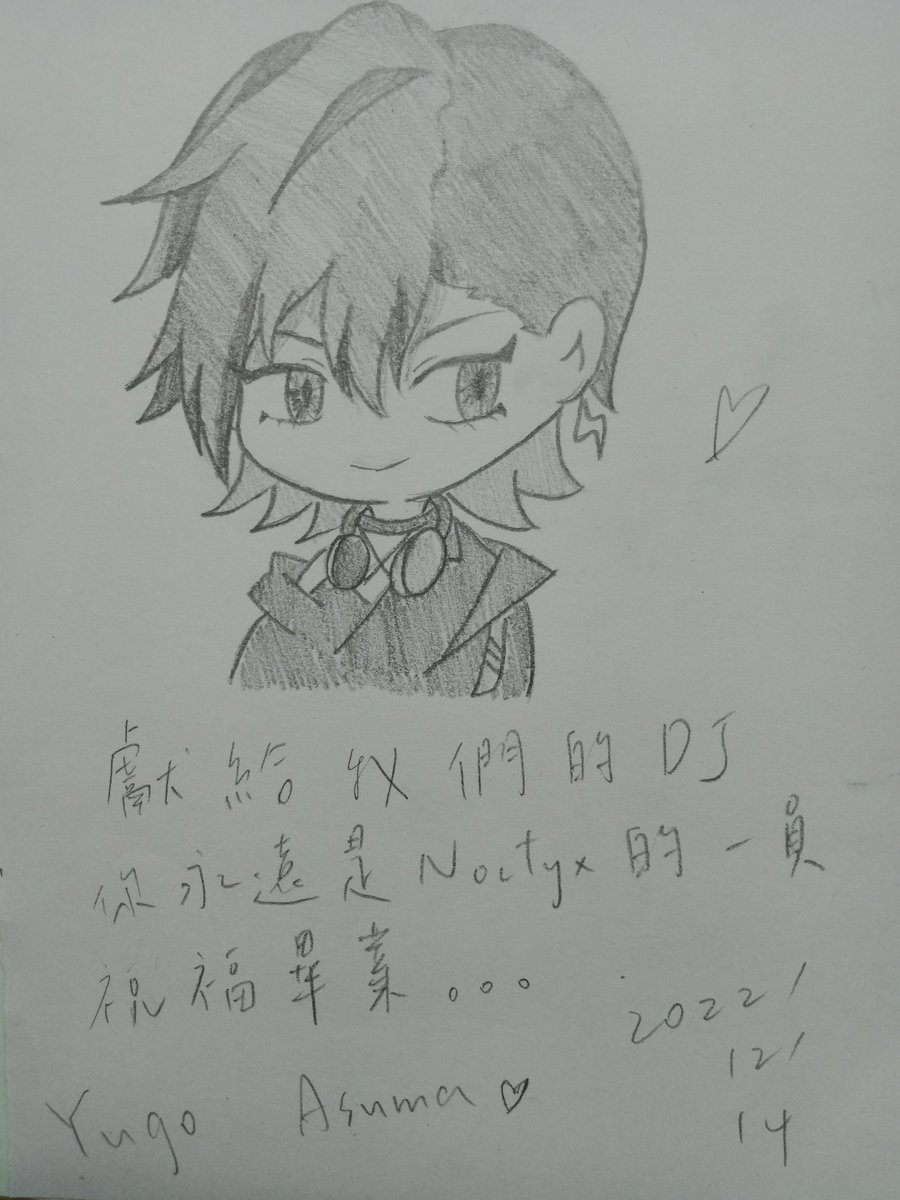 獻給我們的DJ
你永遠是Noctyx的一員
祝福畢業。。。
2022/
12/
14
Yugo Asuma♡